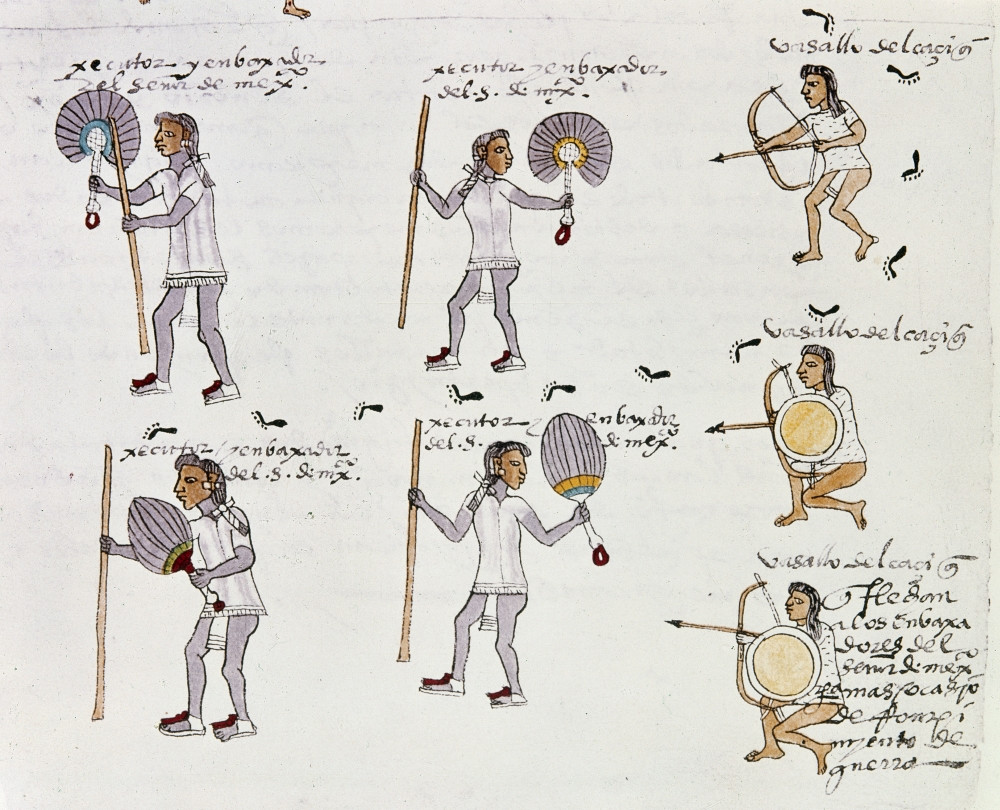 xecutor y enbaxador
del señor de mexco.
xecutor y enbaxador
del. s. de mxco.
vasallo del caciq
vasallo del caciq
xecutor y enbaxador
del. s. de mxco.
xecutor y enbaxador
del. s. de mexco.
vasallo del caciq
q flechan
a los enbaxa
dores del
señor de mexco
de rompi
myento de
guerra